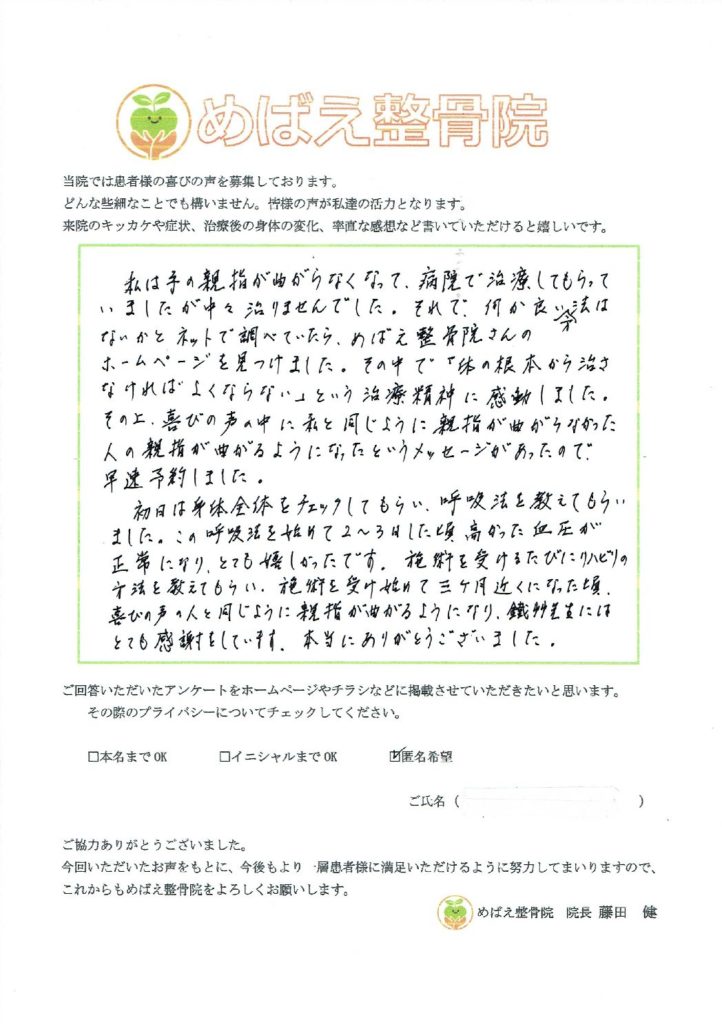 めばえ整骨院
当院では患者様の喜びの声を募集しております。
どんな些細なことでも構いません。皆様の声が私達の活力となります。
来院のキッカケや症状、治療後の身体の変化、率直な感想など書いていただけると嬉しいです。
私は手の親指が曲がらなくなって、病院で治療してもらって
いましたが中々治りませんでした。それで、何か良い方法は
ないかとネットで調べていたら、めばえ整骨院さんの
ホームページを見つけました。その中で「体の根本から治さ
なければよくならない」という治療精神に感動しました。
その上、喜びの声の中に私と同じように親指が曲がらなかった
人の親指が曲がるようになったというメッセージがあったので
早速予約しました。
初日は身体全体をチェックしてもらい、呼吸法を教えてもらい
ました。この呼吸法を始めて2〜3日した頃、高かった血圧が
正常になり、とても嬉しかったです。施術を受けるたびにリハビリの
方法を教えてもらい、施術を受け始めて三ケ月近くになった頃、
喜びの声の人と同じように親指が曲がるようになり、先生には
とても感謝をしています。本当にありがとうございました。
ご回答いただいたアンケートをホームページやチラシなどに掲載させていただきたいと思います。
その際のプライバシーについてチェックしてください。
□本名までOK □イニシャルまでOK ☑匿名希望
ご氏名( )
ご協力ありがとうございました。
今回いただいたお声をもとに、今後もより一層患者様に満足いただけるように努力してまいりますので、
これからもめばえ整骨院をよろしくお願いします。
めばえ整骨院 院長 藤田 健